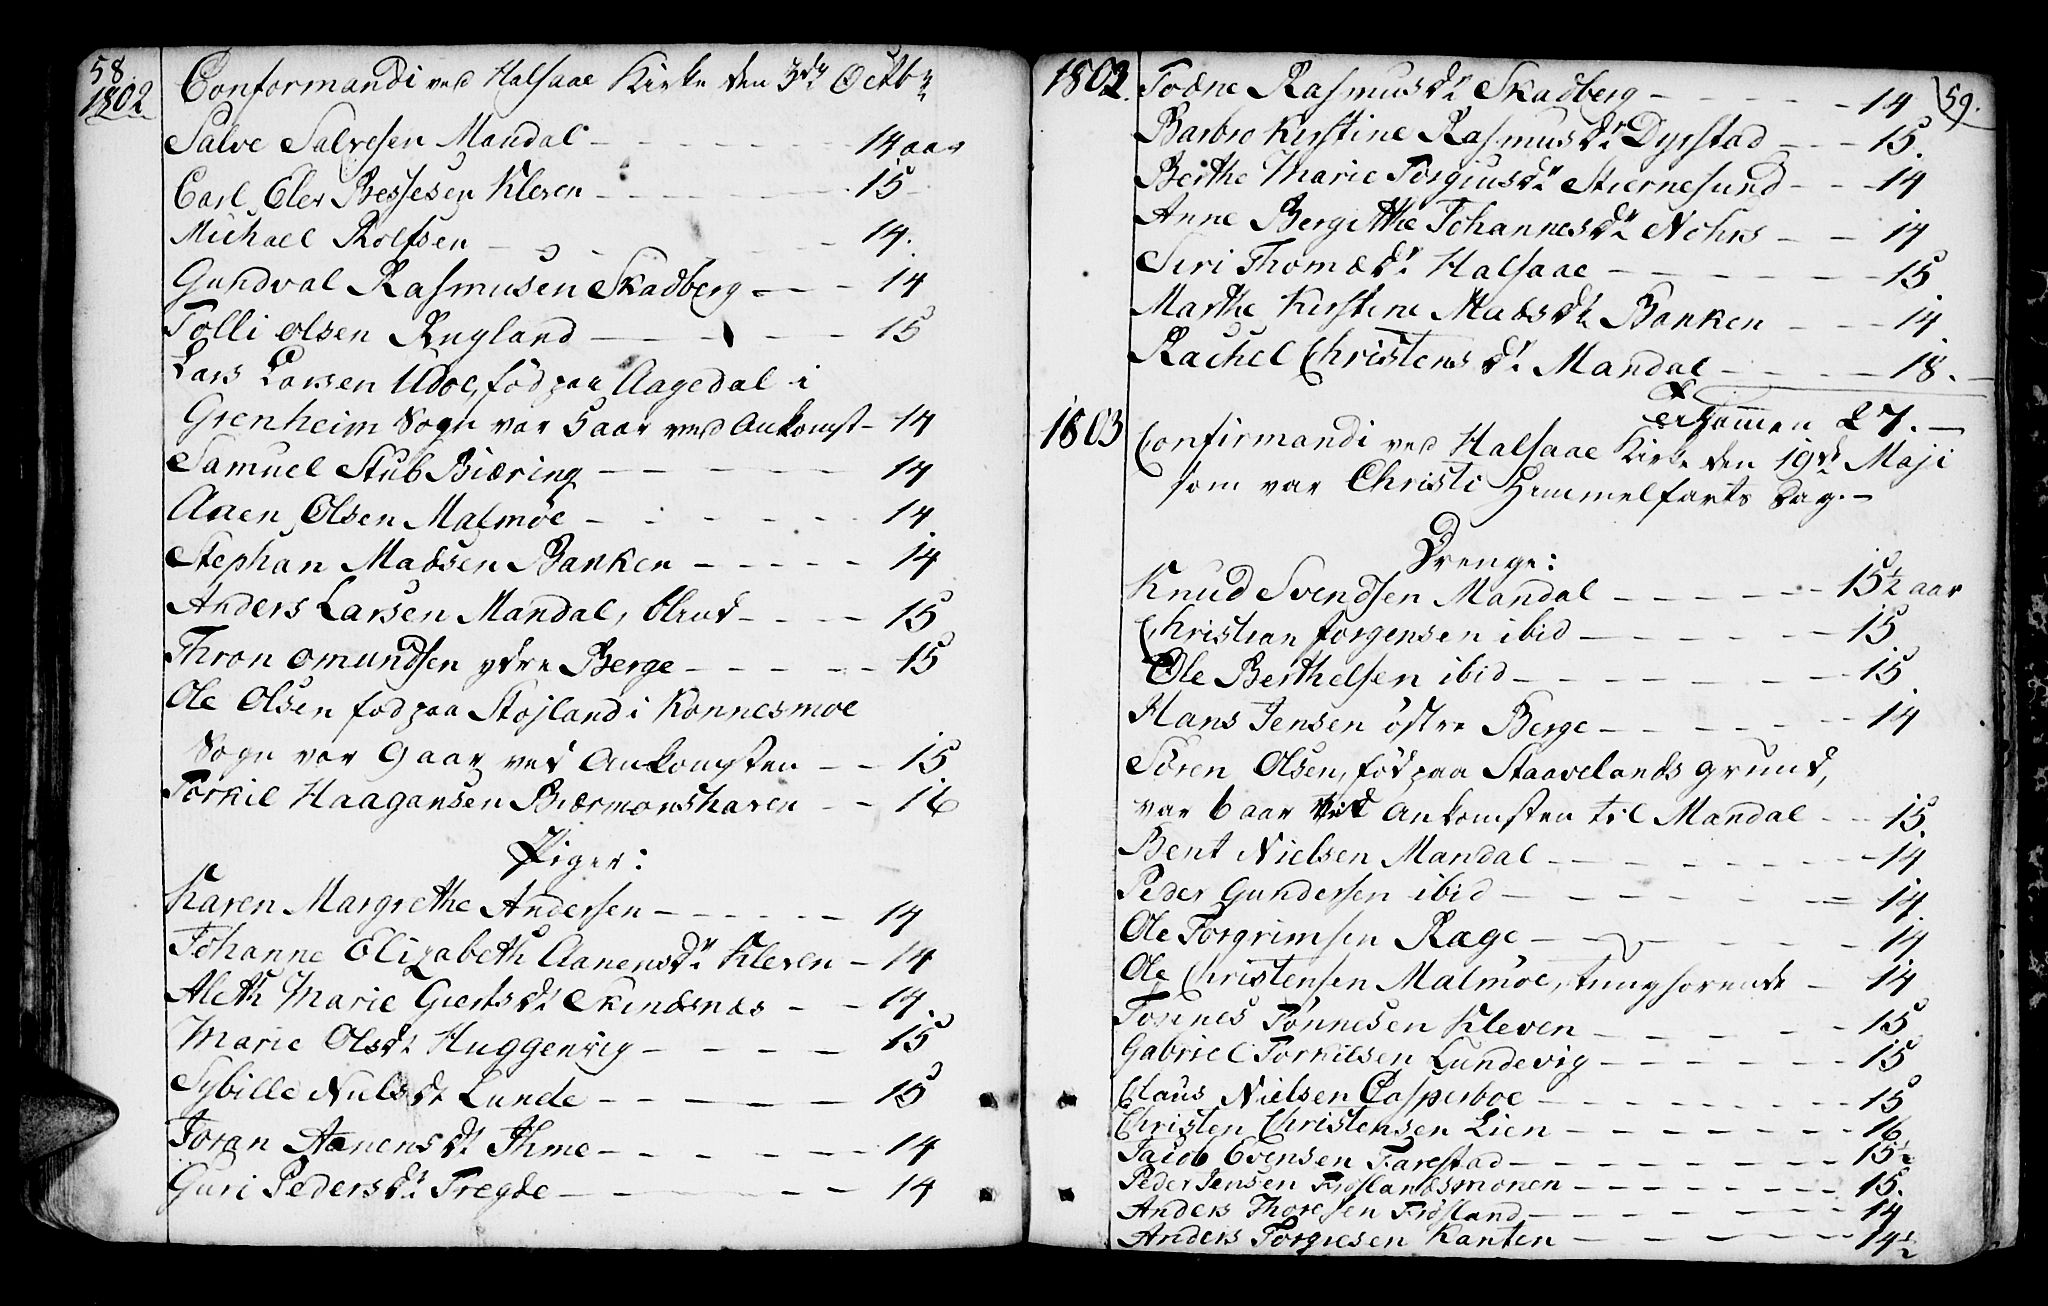 58.
1802 Conformandi ved Halsaae Kirke den 3de Octbr.
Salve Salvesen Mandal - - - 14 aar
Carl Eler Bessesen Kleven - - - 15
Michael Rolfsen - - - 14.
Gundval Rasmusen Skadberg - - - 14
Tolli Olsen Rugland - - - 15
Lars Larsen Udoe, fød paa Aagedal i
Grenheim Sogn var 5 aar ved Ankomst - 14
Samuel Stub Biæring - - - 14
Aaen Olsen Malmöe - - - 14
Stephan Madsen Banken - - - 14
Anders Larsen Mandal, - - - 15
Thron Omundsen ydre Berge - - - 15
Ole Olsen fød paa Stojland i Konnesmoe
Sogn var 9 aar ved Ankomsten - - 15
Torkil Haagansen Biærmonshaven - - 16
Piger:
Karen Margrethe Andersen - - - 14
Johanne Elizabeth Aanensdr. Kleven - 14
Aleth Marie Giertsdr. Skindsnæs - - 14.
Marie Olsdr. Huggenvig - - - 15
Sybille Nielsdr. Lunde - - - 15
Joran Aanensdr. Ihme - - - 14
Guri Pedersdr. Tregde - - - 14
1802. Todne Rasmusdr. Skadberg - - - 14 59.
Barbro Kirstine Rasmusdr. Dyrstad - - - 15.
Berthe Marie Torgiusdr. Stiernesund - - - 14
Anne Bergitthe Johannesdr. Nohrs - - 14
Siri Thomædr. Halsaae - - - 15
Marthe Kirstine Madsdr. Banken - - - 14
Rachel Christensdr. Mandal - - - 18.
Er tilsammen 27. -
1803 Confirmandi ved Halsaae Kirke den 19de Maji
som var Christi Himmelfarts Dag. -
Drenge:
Knud Svendsen Mandal - - - 15½ aar
Christian Jorgensen ibid - - - 15
Ole Berthelsen ibid - - - 15
Hans Jensen östre Berge - - - 14
Sören Olsen, fød paa Staavelands grund,
var 6 aar ved Ankomsten til Mandal - - 15
Bent Nielsen Mandal - - - 14
Peder Gundersen ibid - - - 14
Ole Torgrimsen Ræge - - - 14
Ole Christensen Malmöe, tunghorende - 14
Tønnes Tønnesen Kleven - - - 15
Gabriel Torkilsen Lundevig - - - 15
Claus Nielsen Casperboe - - - 15
Christen Christensen Lien - - - 16
Jacob Evensen Farestad - - - 15½
Peder Jensen Frøslandsmonen - - - 15.
Anders Thoresen Frøsland - - - 14
Anders Torgiesen Kanten - - - 14½